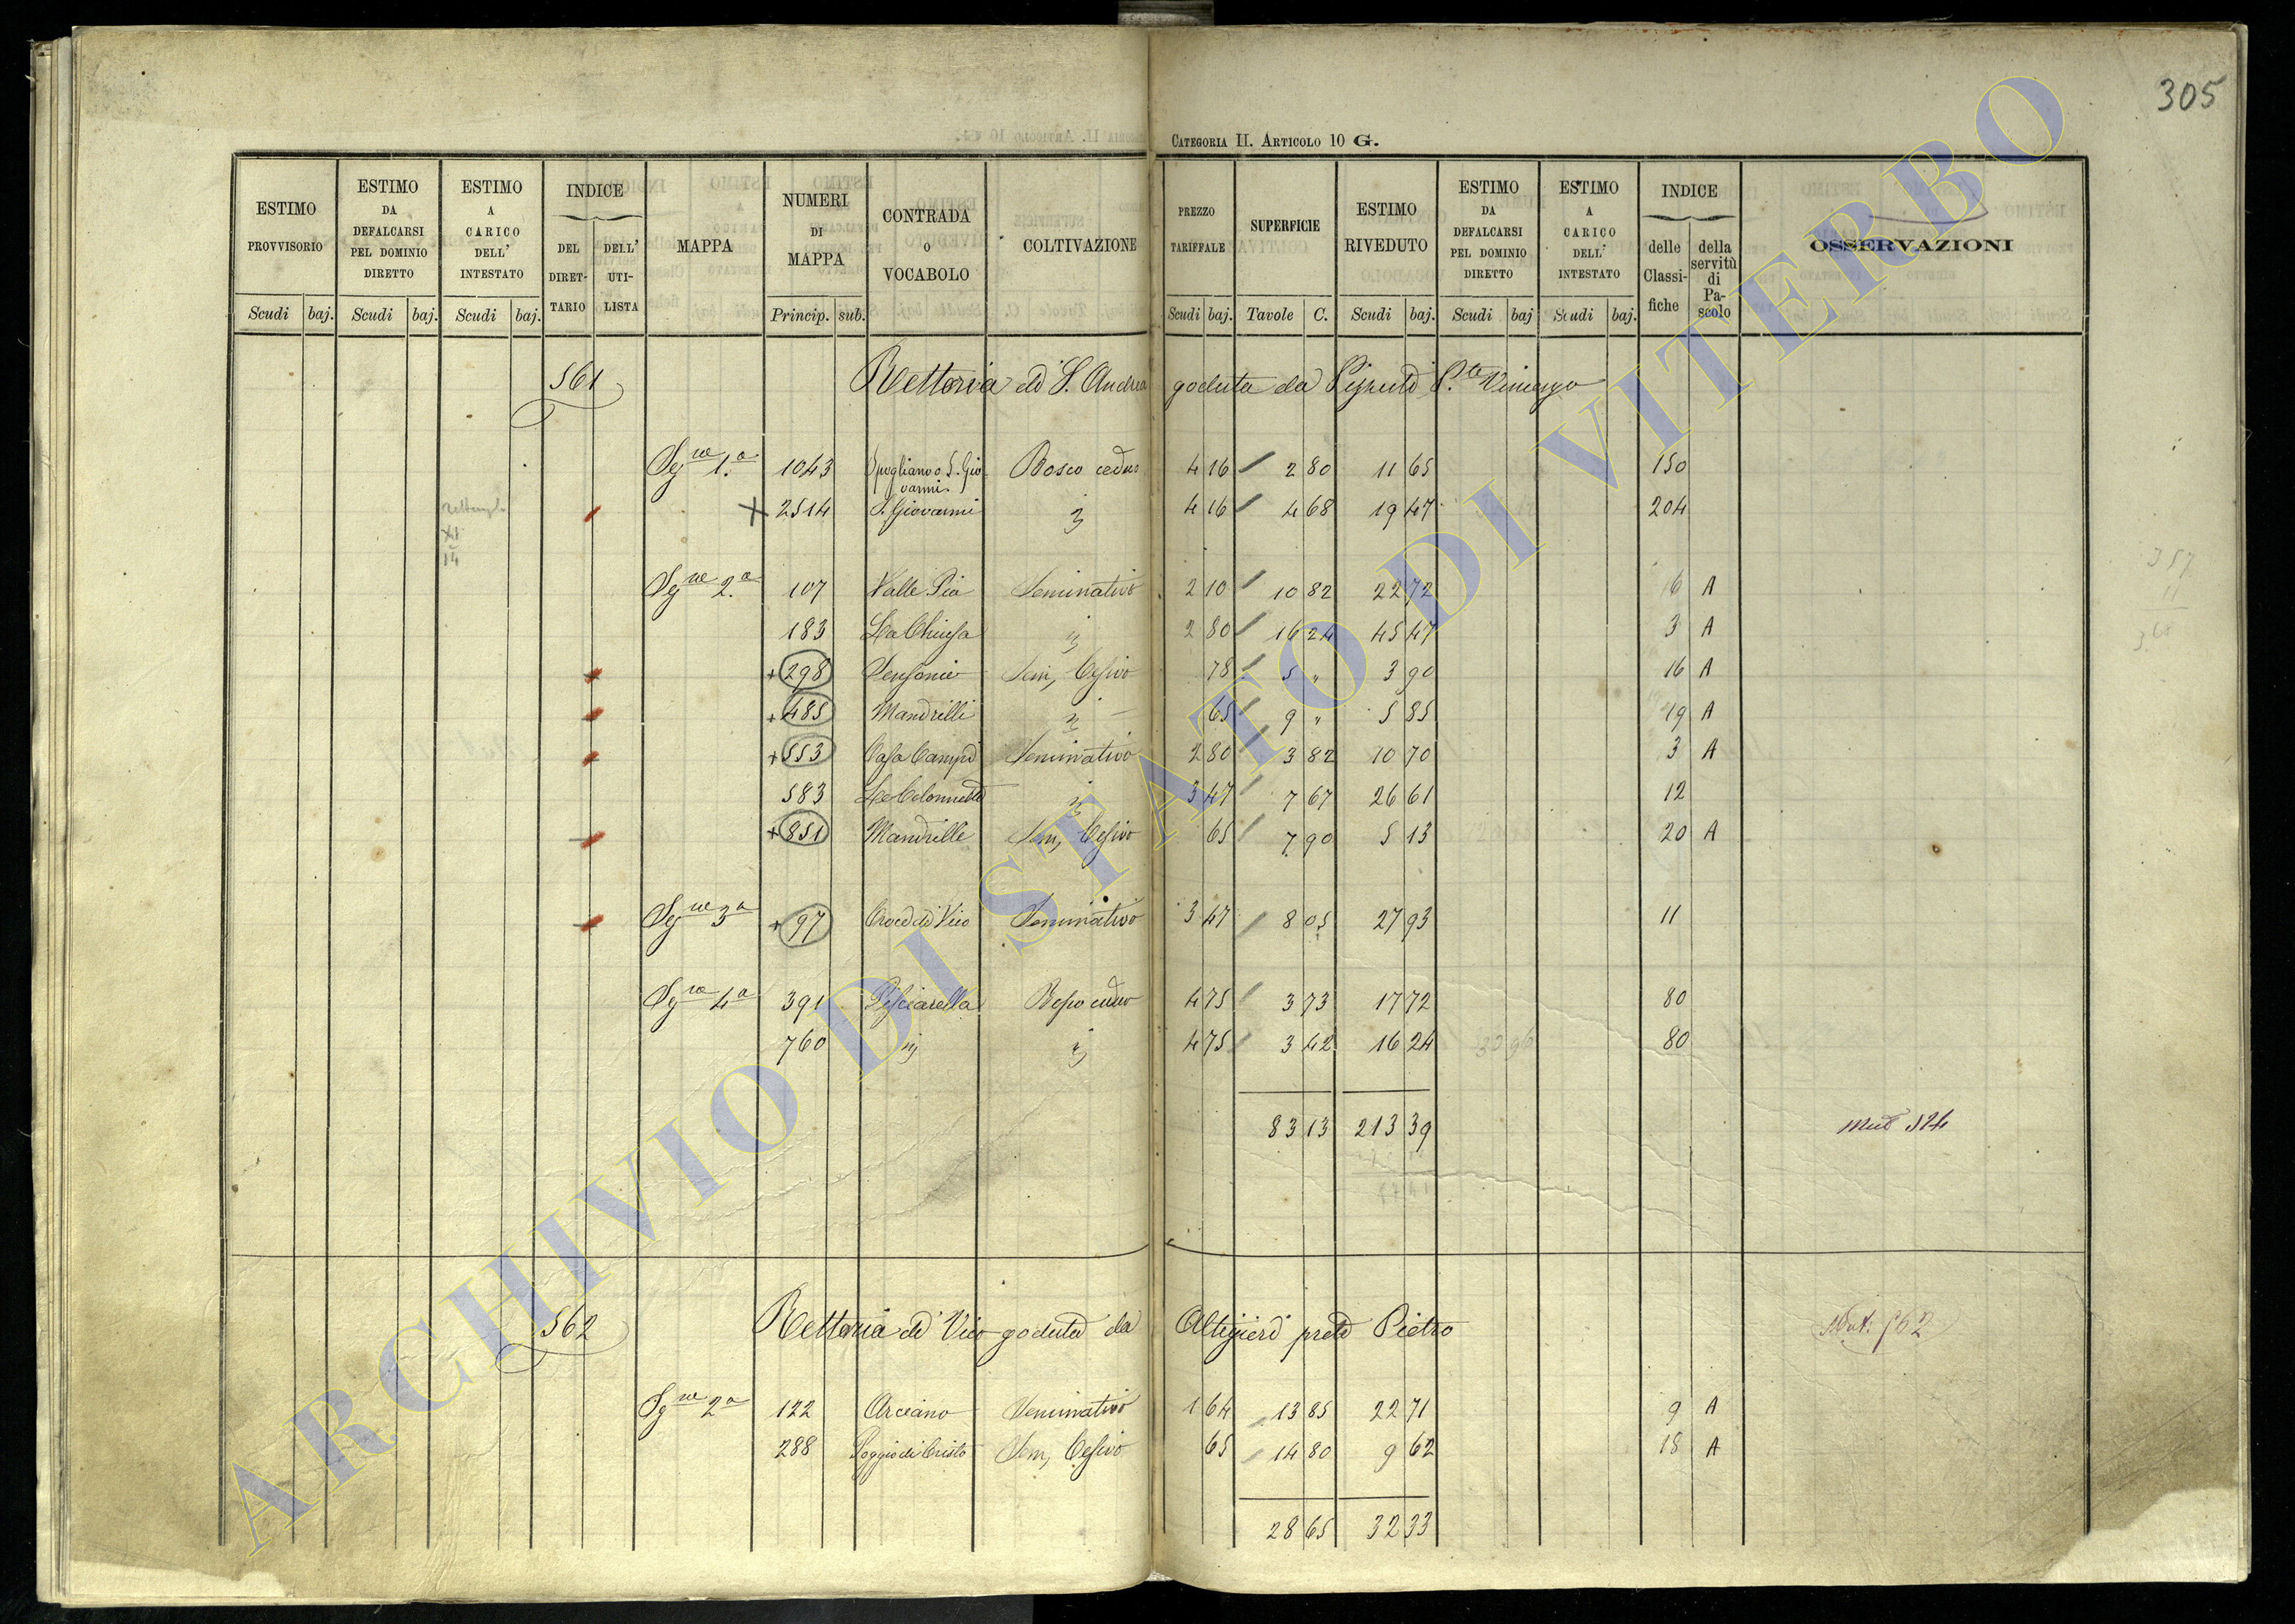 305
CATEGORIA II. ARTICOLO 10 G.
ESTIMO PROVVISORIO | ESTIMO DA DEFALCARSI PEL DOMINIO DIRETTO | ESTIMO A CARICO DELL' INTESTATO | INDICE DEL DIRETTARIO | DELL' UTILISTA | MAPPA | NUMERI DI MAPPA | CONTRADA O VOCABOLO | COLTIVAZIONE | PREZZO TARIFFALE | SUPERFICIE | ESTIMO RIVEDUTO | ESTIMO DA DEFALCARSI PEL DOMINIO DIRETTO | ESTIMO A CARICO DELL' INTESTATO | INDICE delle Classifiche | della servitù di Pascolo | OSSERVAZIONI
Scudi baj. | Scudi baj. | Scudi baj. | Princip. sub. | Scudi baj. | Tavole C. | Scudi baj. | Scudi baj | Scudi baj.
561 Rettoria di S. Andrea goduta da
Sgne 1.a 1043 Spogliano o S. Giovanni Bosco ceduo 4 16 2 80 11 65 150
+ 2514 S. Giovanni " 4 16 4 68 19 47 204
Sgne 2.a 107 Valle Pia Seminativo 2 10 10 82 22 72 6 A
183 La Chiusa " 2 80 16 24 45 47 3 A
+ 298 Sem, Cesivo 78 5 " 3 90 16 A
+ 485 Mandrilli " 65 9 " 5 85 19 A
+ 553 Casa Campi Seminativo 2 80 3 82 10 70 3 A
583 Le Colonnette " 3 47 7 67 26 61 12
+ 851 Mandrille Sem, Cesivo 65 7 90 5 13 20 A
Sgne 3a + 97 Croce di Vico Seminativo 3 47 8 05 27 93 11
Sgne 4a 391 Pisciarella Bosco ceduo 4 75 3 73 17 72 80
760 " " 4 75 3 42 16 24 80
83 13 213 39
562 Rettoria di Vico goduta da Altigieri prete Pietro Mut. 562
Sgne 2a 122 Arceano Seminativo 1 64 13 85 22 71 9 A
288 Poggio di Cristo Sem, Cesivo 65 14 80 9 62 18 A
28 65 32 33
ARCHIVIO DI STATO DI VITERBO